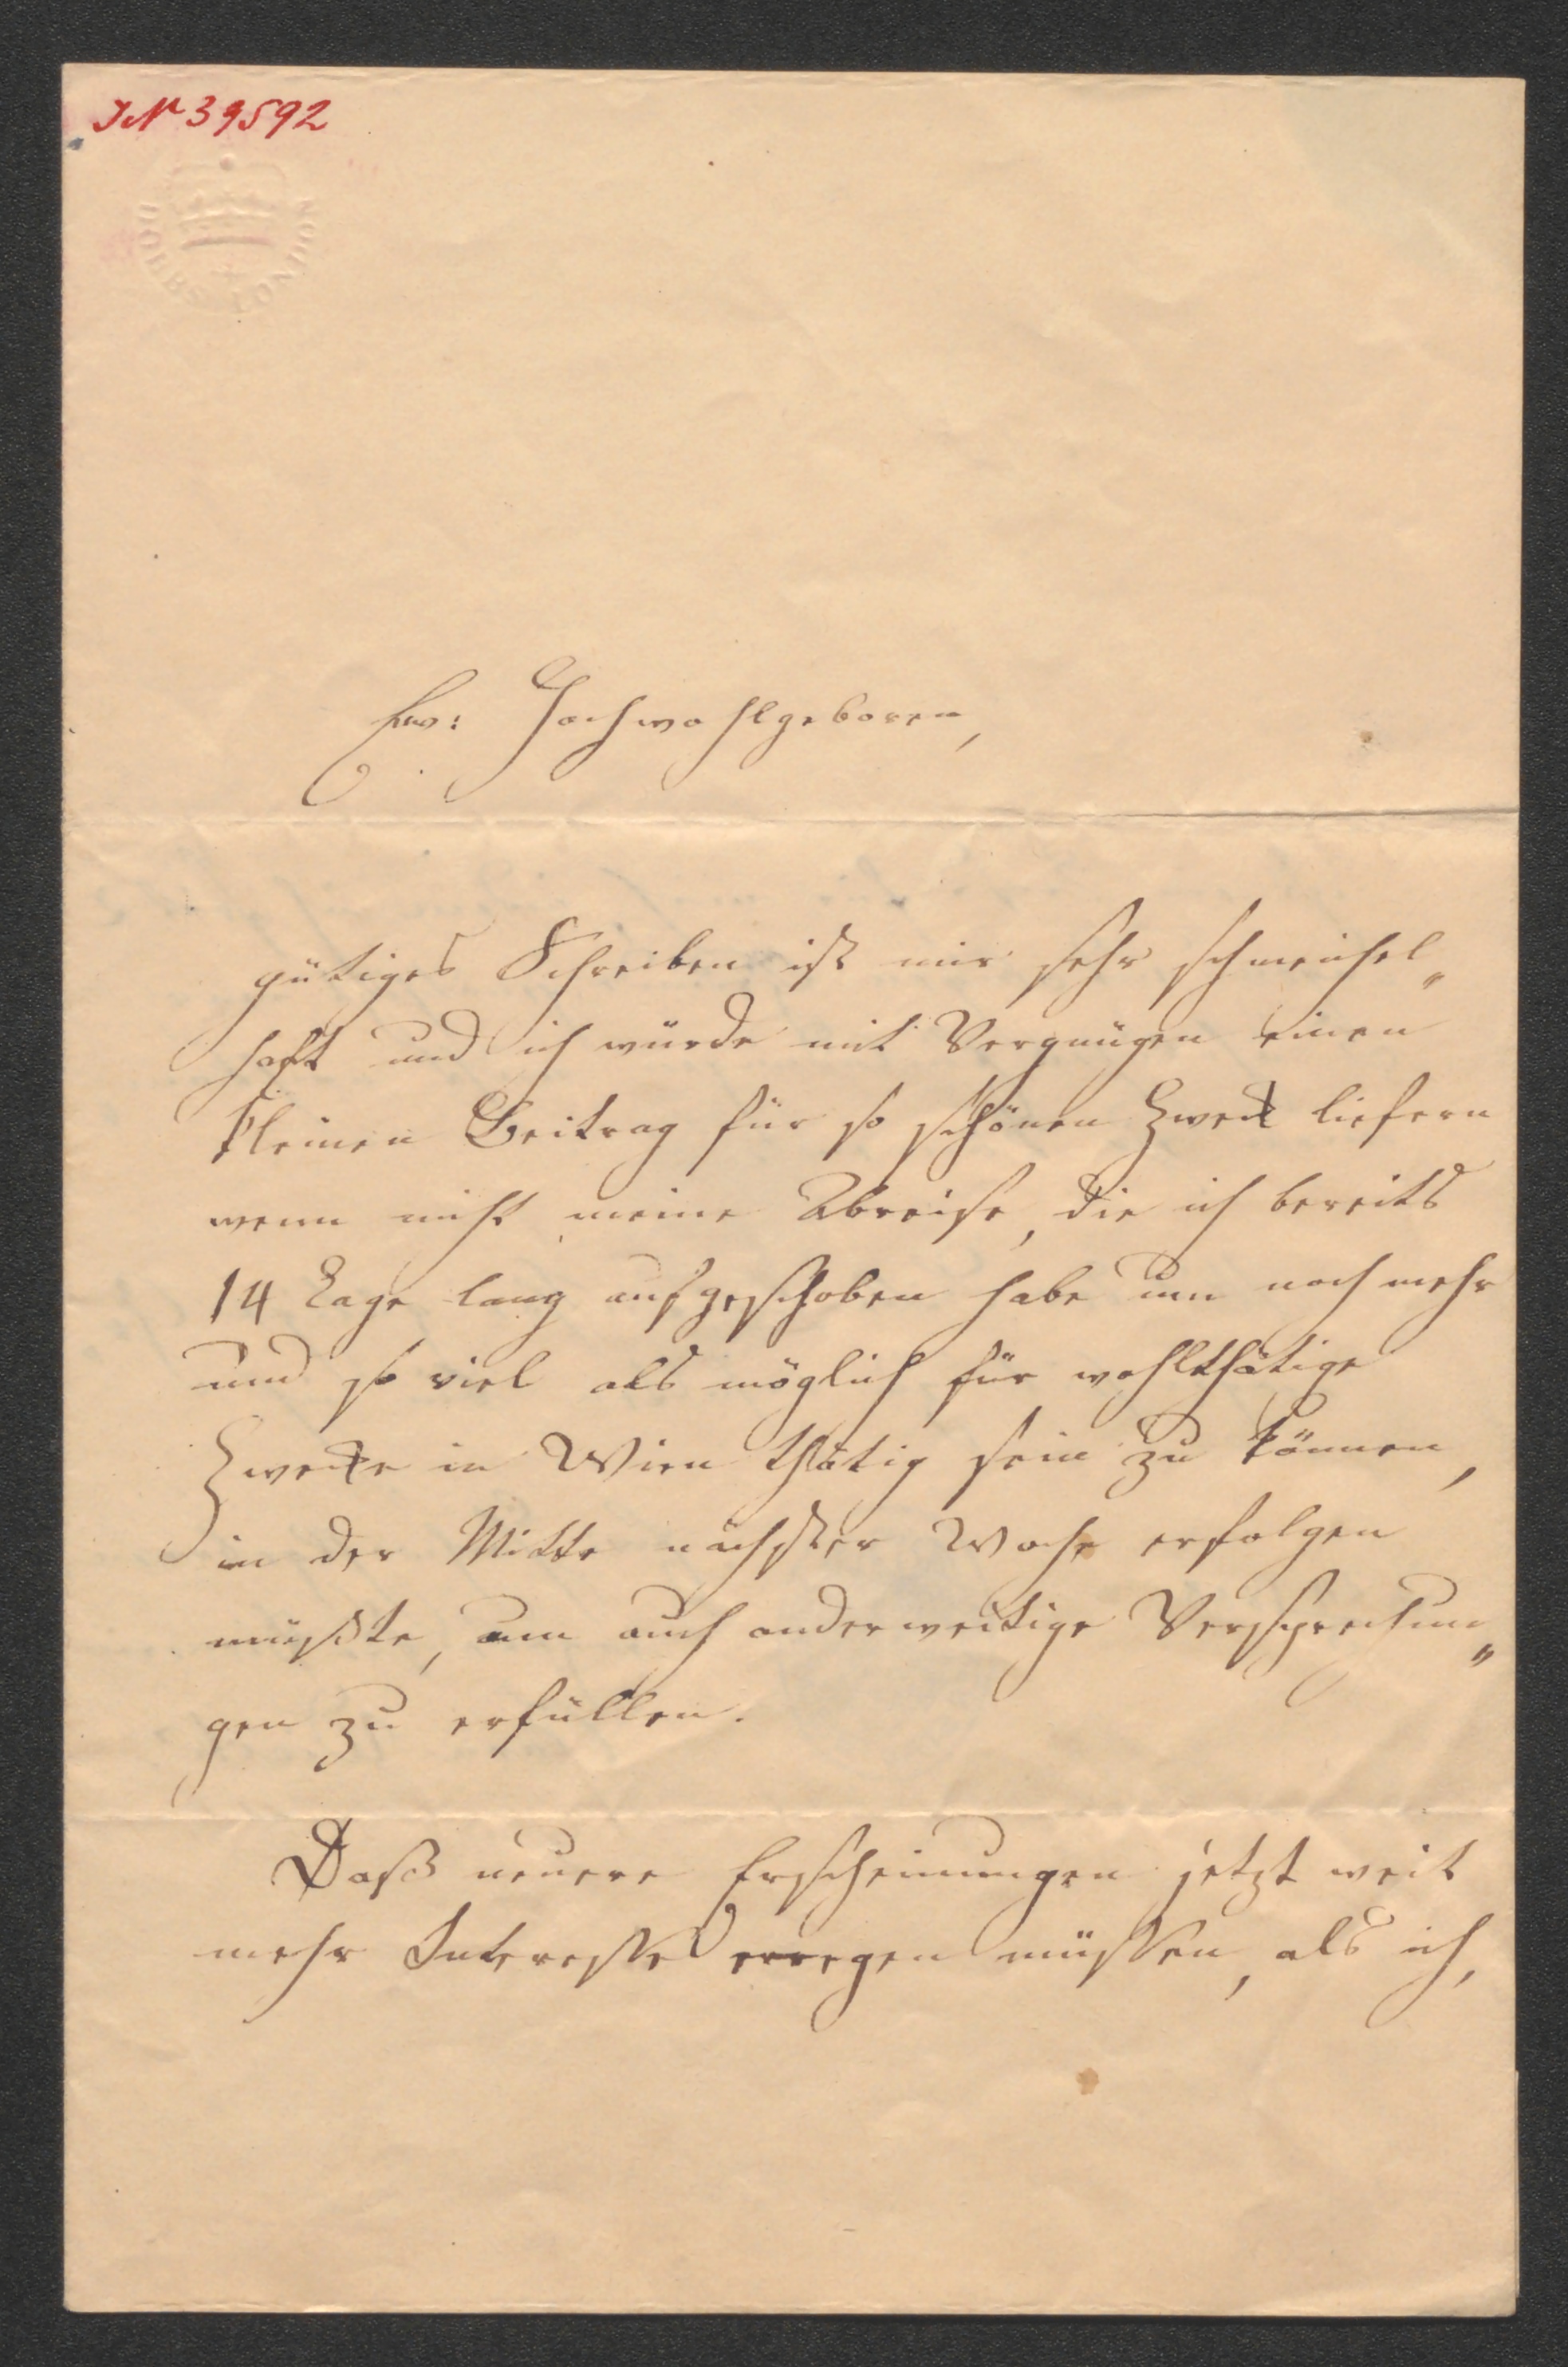 JN 39592
DOBBS LONDON
Ew: Hochwohlgeboren,
gütiges Schreiben ist mir sehr schmeichel„
haft und ich würde mit Vergnügen einen
kleinen Beitrag für so schönen Zweck liefern
wenn nicht meine Abreise, die ich bereits
14 Tage lang aufgeschoben habe um noch mehr
und so viel als möglich für wohlthätige
Zwecke in Wien thätig sein zu können,
in der Mitte nächster Woche erfolgen
müßte, um auch anderweitige Versprechun„
gen zu erfüllen.
Daß neuere Erscheinungen jetzt weit
mehr Interesse erregen müssen, als ich,